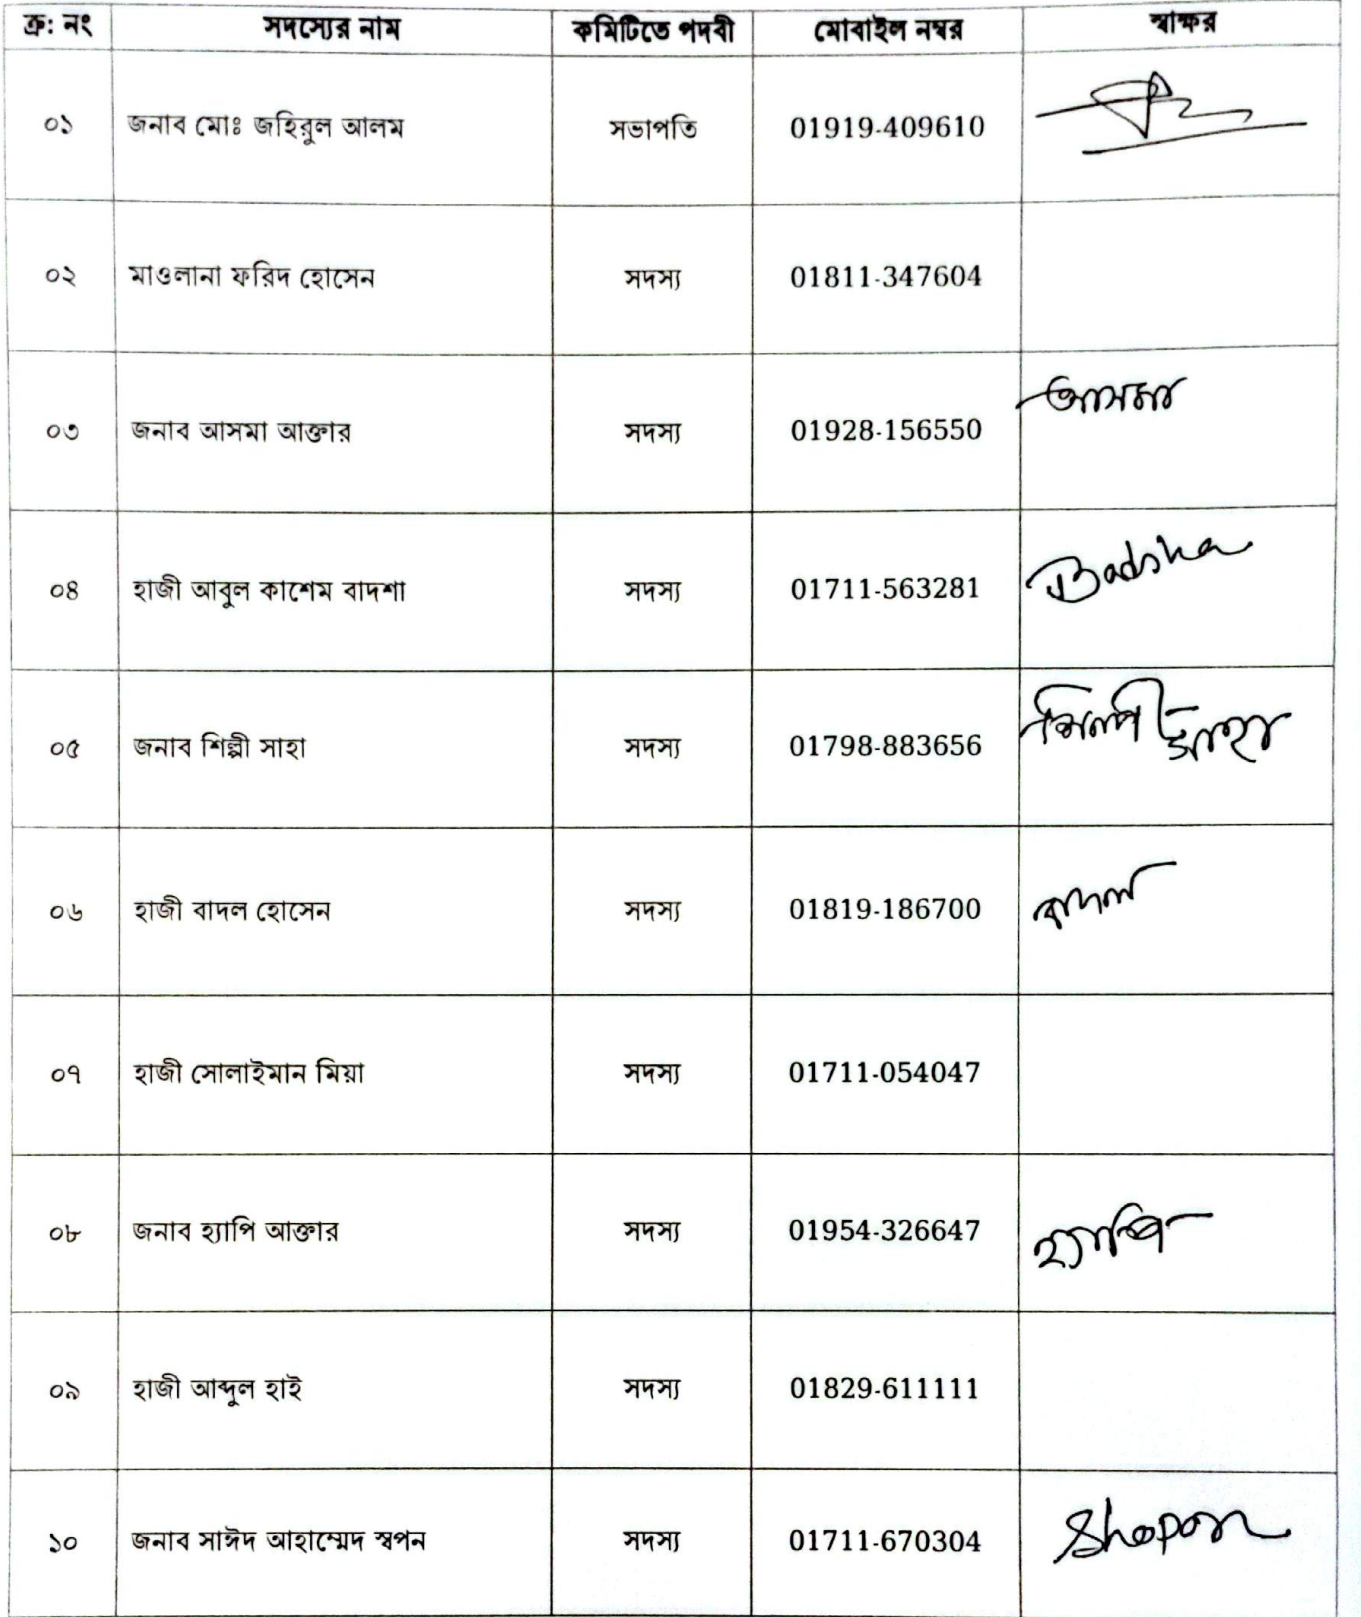 ক্র: নং সদস্যের নাম কমিটিতে পদবী মোবাইল নম্বর স্বাক্ষর
০১ জনাব মোঃ জহিরুল আলম সভাপতি 01919-409610
০২ মাওলানা ফরিদ হোসেন সদস্য 01811-347604
০৩ জনাব আসমা আক্তার সদস্য 01928-156550 আসমা
০৪ হাজী আবুল কাশেম বাদশা সদস্য 01711-563281 Badsha
০৫ জনাব শিল্পী সাহা সদস্য 01798-883656 শিল্পী সাহা
০৬ হাজী বাদল হোসেন সদস্য 01819-186700 বাদল
০৭ হাজী সোলাইমান মিয়া সদস্য 01711-054047
০৮ জনাব হ্যাপি আক্তার সদস্য 01954-326647 হ্যাপি
০৯ হাজী আব্দুল হাই সদস্য 01829-611111
১০ জনাব সাঈদ আহাম্মেদ স্বপন সদস্য 01711-670304 Shopon